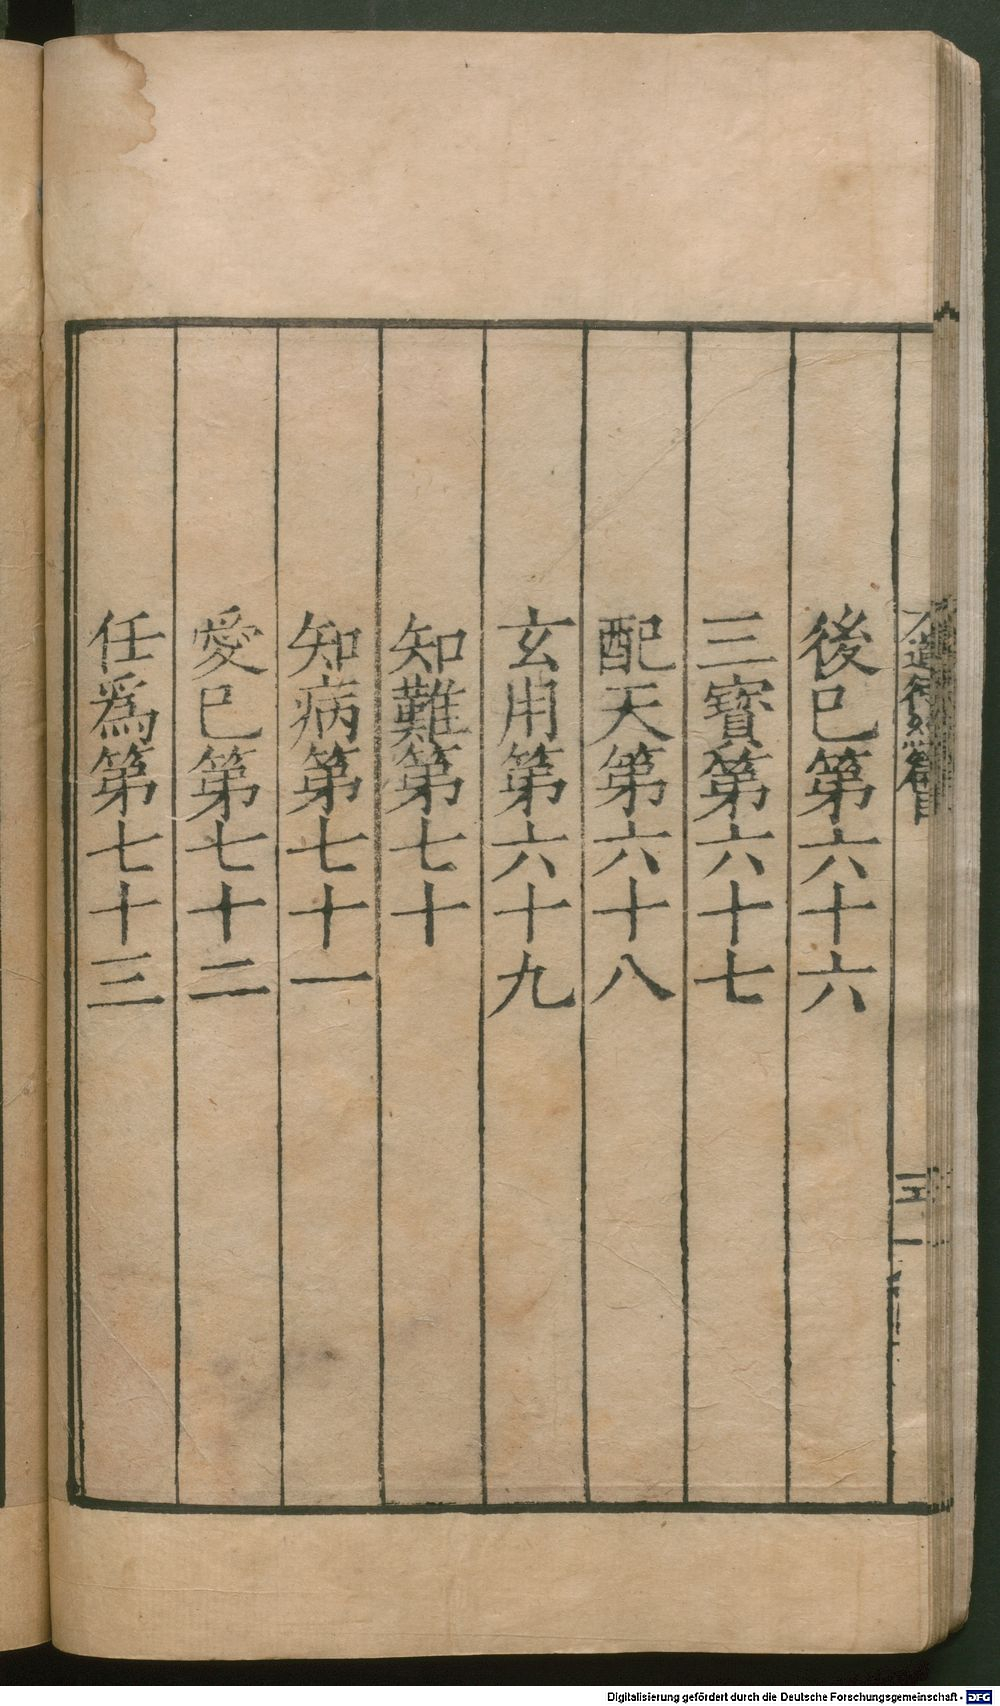 後已第六十六
三寳第六十七
配天第六十八
玄用第六十九
知難第七十
知病第七十一
愛已第七十二
任爲第七十三
Digitalisierung gefördert durch die Deutsche Forschungsgemeinschaft - DFG